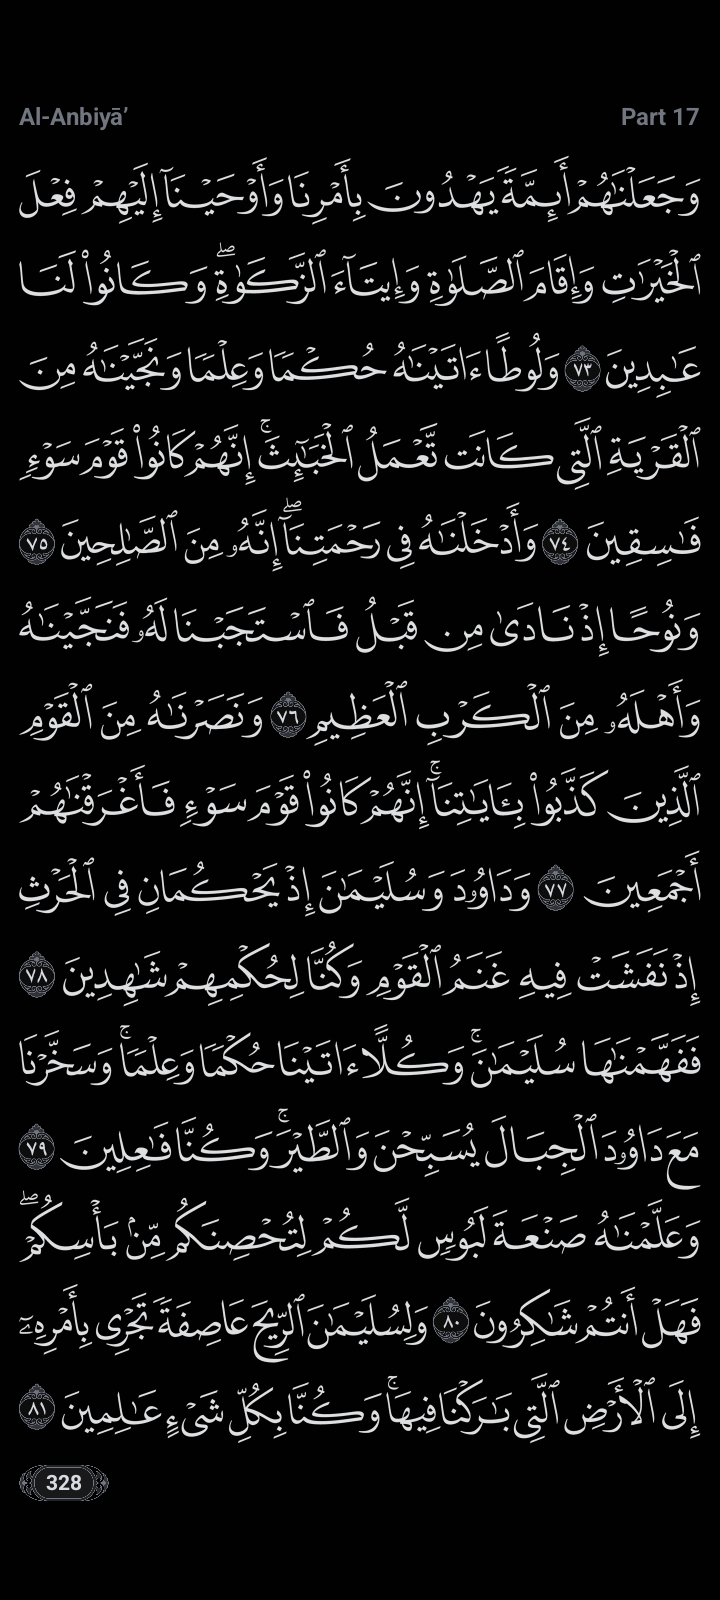 Al-Anbiyā’ Part 17
وَجَعَلْنَـٰهُمْ أَئِمَّةً يَهْدُونَ بِأَمْرِنَا وَأَوْحَيْنَآ إِلَيْهِمْ فِعْلَ
ٱلْخَيْرَٰتِ وَإِقَامَ ٱلصَّلَوٰةِ وَإِيتَآءَ ٱلزَّكَوٰةِ ۖ وَكَانُوا۟ لَنَا
عَـٰبِدِينَ ٧٣ وَلُوطًا ءَاتَيْنَـٰهُ حُكْمًا وَعِلْمًا وَنَجَّيْنَـٰهُ مِنَ
ٱلْقَرْيَةِ ٱلَّتِى كَانَت تَّعْمَلُ ٱلْخَبَـٰٓئِثَ ۚ إِنَّهُمْ كَانُوا۟ قَوْمَ سَوْءٍ
فَـٰسِقِينَ ٧٤ وَأَدْخَلْنَـٰهُ فِى رَحْمَتِنَآ ۖ إِنَّهُۥ مِنَ ٱلصَّـٰلِحِينَ ٧٥
وَنُوحًا إِذْ نَادَىٰ مِن قَبْلُ فَٱسْتَجَبْنَا لَهُۥ فَنَجَّيْنَـٰهُ
وَأَهْلَهُۥ مِنَ ٱلْكَرْبِ ٱلْعَظِيمِ ٧٦ وَنَصَرْنَـٰهُ مِنَ ٱلْقَوْمِ
ٱلَّذِينَ كَذَّبُوا۟ بِـَٔايَـٰتِنَآ ۚ إِنَّهُمْ كَانُوا۟ قَوْمَ سَوْءٍ فَأَغْرَقْنَـٰهُمْ
أَجْمَعِينَ ٧٧ وَدَاوُۥدَ وَسُلَيْمَـٰنَ إِذْ يَحْكُمَانِ فِى ٱلْحَرْثِ
إِذْ نَفَشَتْ فِيهِ غَنَمُ ٱلْقَوْمِ وَكُنَّا لِحُكْمِهِمْ شَـٰهِدِينَ ٧٨
فَفَهَّمْنَـٰهَا سُلَيْمَـٰنَ ۚ وَكُلًّا ءَاتَيْنَا حُكْمًا وَعِلْمًا ۚ وَسَخَّرْنَا
مَعَ دَاوُۥدَ ٱلْجِبَالَ يُسَبِّحْنَ وَٱلطَّيْرَ ۚ وَكُنَّا فَـٰعِلِينَ ٧٩
وَعَلَّمْنَـٰهُ صَنْعَةَ لَبُوسٍ لَّكُمْ لِتُحْصِنَكُم مِّنۢ بَأْسِكُمْ ۖ
فَهَلْ أَنتُمْ شَـٰكِرُونَ ٨٠ وَلِسُلَيْمَـٰنَ ٱلرِّيحَ عَاصِفَةً تَجْرِى بِأَمْرِهِۦٓ
إِلَى ٱلْأَرْضِ ٱلَّتِى بَـٰرَكْنَا فِيهَا ۚ وَكُنَّا بِكُلِّ شَىْءٍ عَـٰلِمِينَ ٨١
328